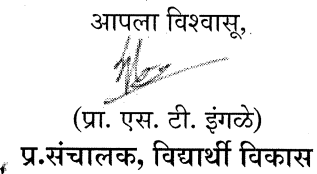 आपला विश्वासू,
(प्रा. एस. टी. इंगळे)
प्र.संचालक, विद्यार्थी विकास